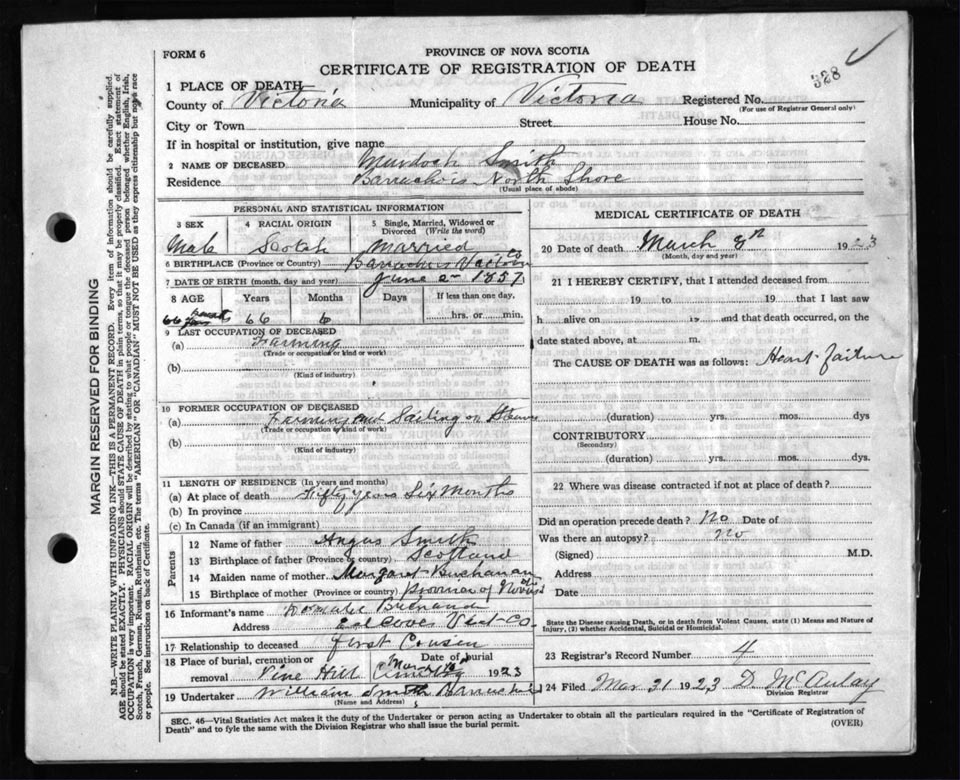 FORM 6
PROVINCE OF NOVA SCOTIA
CERTIFICATE OF REGISTRATION OF DEATH
328
1 PLACE OF DEATH
County of Victoria Municipality of Victoria Registered No.
(For use of Registrar General only)
City or Town Street House No.
If in hospital or institution, give name
2 NAME OF DECEASED Murdoch Smith
Residence Barrachois North Shore
(Usual place of abode)
PERSONAL AND STATISTICAL INFORMATION
3 SEX 4 RACIAL ORIGIN 5 Single, Married, Widowed or Divorced (Write the word)
Male Scotch Married
6 BIRTHPLACE (Province or Country) Barrachois Victoria Co
7 DATE OF BIRTH (month, day and year) June 2 1857
8 AGE Years Months Days If less than one day,
66 6 hrs. or min.
9 LAST OCCUPATION OF DECEASED
(a) Farming
(Trade or occupation or kind or work)
(b)
(Kind of industry)
10 FORMER OCCUPATION OF DECEASED
(a) Farming and Sailing on
(Trade or occupation or kind of work)
(b)
(Kind of industry)
11 LENGTH OF RESIDENCE (In years and months)
(a) At place of death Fifty years Six Months
(b) In province
(c) In Canada (if an immigrant)
Parents
12 Name of father Angus Smith
13 Birthplace of father (Province or country) Scotland
14 Maiden name of mother Margaret Buchanan
15 Birthplace of mother (Province or country) Province of
16 Informant's name
Address
17 Relationship to deceased first Cousin
18 Place of burial, cremation or removal Pine Hill Date of burial 1923
19 Undertaker William Smith
(Name and Address)
MEDICAL CERTIFICATE OF DEATH
20 Date of death March 8th 1923
(Month, day and year)
21 I HEREBY CERTIFY, that I attended deceased from
19 to 19 that I last saw
h alive on 19 and that death occurred, on
date stated above, at m.
The CAUSE OF DEATH was as follows: Heart failure
(duration) yrs. mos. dys
CONTRIBUTORY
(Secondary)
(duration) yrs. mos. dys
22 Where was disease contracted if not at place of death?
Did an operation precede death? No Date of
Was there an autopsy? no
(Signed) M.D.
Address
Date
State the Disease causing Death, or in death from Violent Causes, state (1) Means and Nature of Injury, (2) whether Accidental, Suicidal or Homicidal.
23 Registrar's Record Number 4
24 Filed Mar 31 1923 D. McAulay
Division Registrar
SEC. 46—Vital Statistics Act makes it the duty of the Undertaker or person acting as Undertaker to obtain all the particulars required in the "Certificate of Registration of
Death" and to fyle the same with the Division Registrar who shall issue the burial permit.
(OVER)
MARGIN RESERVED FOR BINDING
N.B.—WRITE PLAINLY WITH UNFADING INK—THIS IS A PERMANENT RECORD. Every item of information should be carefully supplied.
AGE should be stated EXACTLY. PHYSICIANS should STATE CAUSE OF DEATH in plain terms, so that it may be properly classified. Exact statement of
OCCUPATION is very important. RACIAL ORIGIN will be described by stating to what people or tongue the deceased person belonged whether English, Irish,
Scotch, French, German, Russian, Ruthenian, etc. The terms "AMERICAN" or "CANADIAN" MUST NOT BE USED as they express citizenship but not a race
or people. See instructions on back of Certificate.